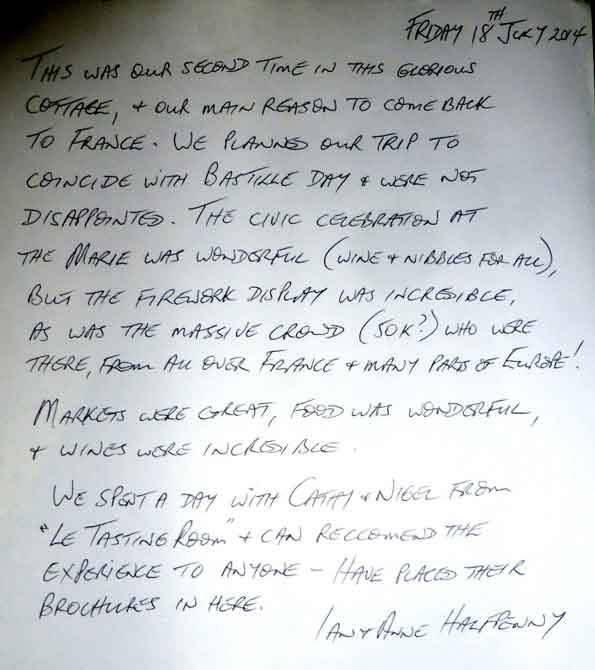 FRIDAY 18TH JULY 2014
THIS WAS OUR SECOND TIME IN THIS GLORIOUS
COTTAGE, & OUR MAIN REASON TO COME BACK
TO FRANCE. WE PLANNED OUR TRIP TO
COINCIDE WITH BASTILLE DAY & WERE NOT
DISAPPOINTED. THE CIVIC CELEBRATION AT
THE MARIE WAS WONDERFUL (WINE & NIBBLES FOR ALL),
BUT THE FIREWORK DISPLAY WAS INCREDIBLE,
AS WAS THE MASSIVE CROWD (50K?) WHO WERE
THERE, FROM ALL OVER FRANCE & MANY PARTS OF EUROPE!
MARKETS WERE GREAT, FOOD WAS WONDERFUL,
& WINES WERE INCREDIBLE.
WE SPENT A DAY WITH CATHY & NIGEL FROM
"LE TASTING ROOM" & CAN RECCOMEND THE
EXPERIENCE TO ANYONE – HAVE PLACED THEIR
BROCHURES IN HERE.
IAN & ANNE HALFPENNY